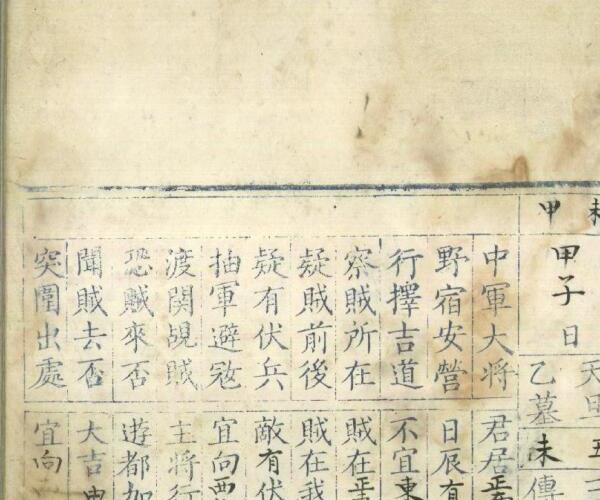 甲
甲子日
乙墓未
中軍大將
君居
野宿安營
日辰有
行擇吉道
不宜東
察賊所在
賊在正
疑賊前後
賊在我
疑有伏兵
敵有伏
抽軍避寇
宜向西
渡関覘賊
主將行
恐賊來否
遊都加
聞賊去否
大吉
突圍出處
宜向